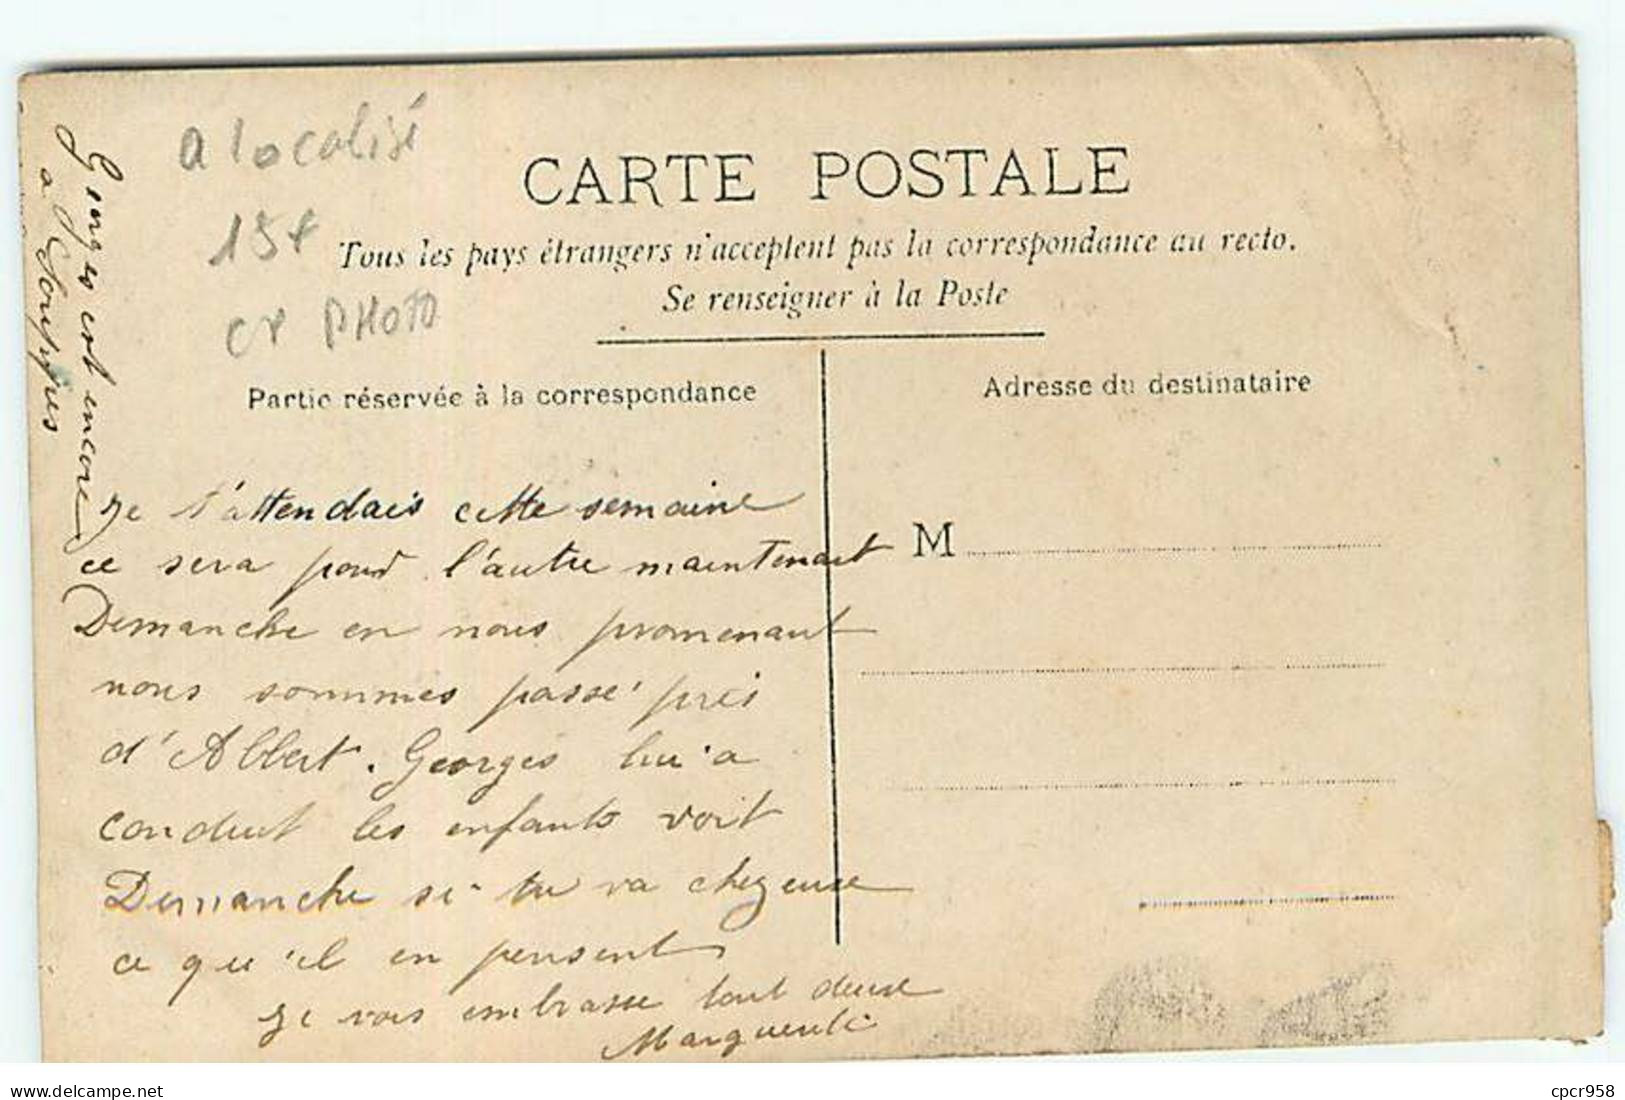 a localisé
15€
CP PHOTO
CARTE POSTALE
Tous les pays étrangers n'acceptent pas la correspondance au recto.
Se renseigner à la Poste
Partie réservée à la correspondance
Adresse du destinataire
M
Georges est encore
a
Je t'attendais cette semaine
ce sera pour l'autre maintenant
Dimanche en nous promenant
nous sommes passé près
d'Albert. Georges lui a
conduit les enfants voit
Dimanche si tu va chez eux
ce qu'il en pensent
Je vous embrasse tout deux
Marguerite
cpcr958